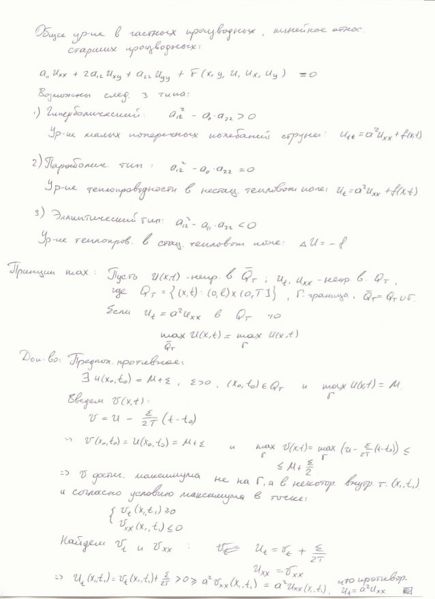 Общее ур-ие в частных производных, линейное относ.
старших производных:
a₁₁ Uxx + 2a₁₂ Uxy + a₂₂ Uyy + F(x, y, U, Ux, Uy) = 0
Возможны след. 3 типа:
1) Гиперболический: a₁₂² - a₁₁ a₂₂ > 0
Ур-ие малых поперечных колебаний струны: Utt = a²Uxx + f(x,t)
2) Параболич тип: a₁₂² - a₁₁·a₂₂ = 0
Ур-ие теплопроводности в нестац. тепловом поле: Ut = a²Uxx + f(x,t)
3) Эллиптический тип: a₁₂² - a₁₁·a₂₂ < 0
Ур-ие теплопров. в стац. тепловом поле: ΔU = -f
Принцип max: Пусть U(x,t) - непр. в Q̄T; Ut, Uxx - непр. в QT,
где QT = {(x,t): (0,ℓ)x(0,T]}, Г-граница, Q̄T = QT ∪ Г.
Если Ut = a²Uxx в QT то
max U(x,t) = max U(x,t)
Q̄T Г
Док-во: Предпол. противное:
∃ U(x₀,t₀) = M+ε, ε>0, (x₀,t₀) ∈ QT и max U(x,t) = M
Г
Введем V(x,t):
V = U - ε/2T (t-t₀)
⇒ V(x₀,t₀) = U(x₀,t₀) = M+ε и max V(x,t) = max (U - ε/2T (t-t₀)) ≤
Г Г
≤ M + ε/2
⇒ V дост. максимума не на Г, а в некотор. внутр. т. (x₁,t₁)
и согласно условию максимума в точке:
{ Vt(x₁,t₁) ≥ 0
Vxx(x₁,t₁) ≤ 0
Найдем Vt и Vxx: Ut = Vt + ε/2T
Uxx = Vxx
⇒ Ut(x₁,t₁) = Vt(x₁,t₁) + ε/2T > 0 ≥ a²Vxx(x₁,t₁) = a²Uxx(x₁,t₁), что противор.
Ut = a²Uxx